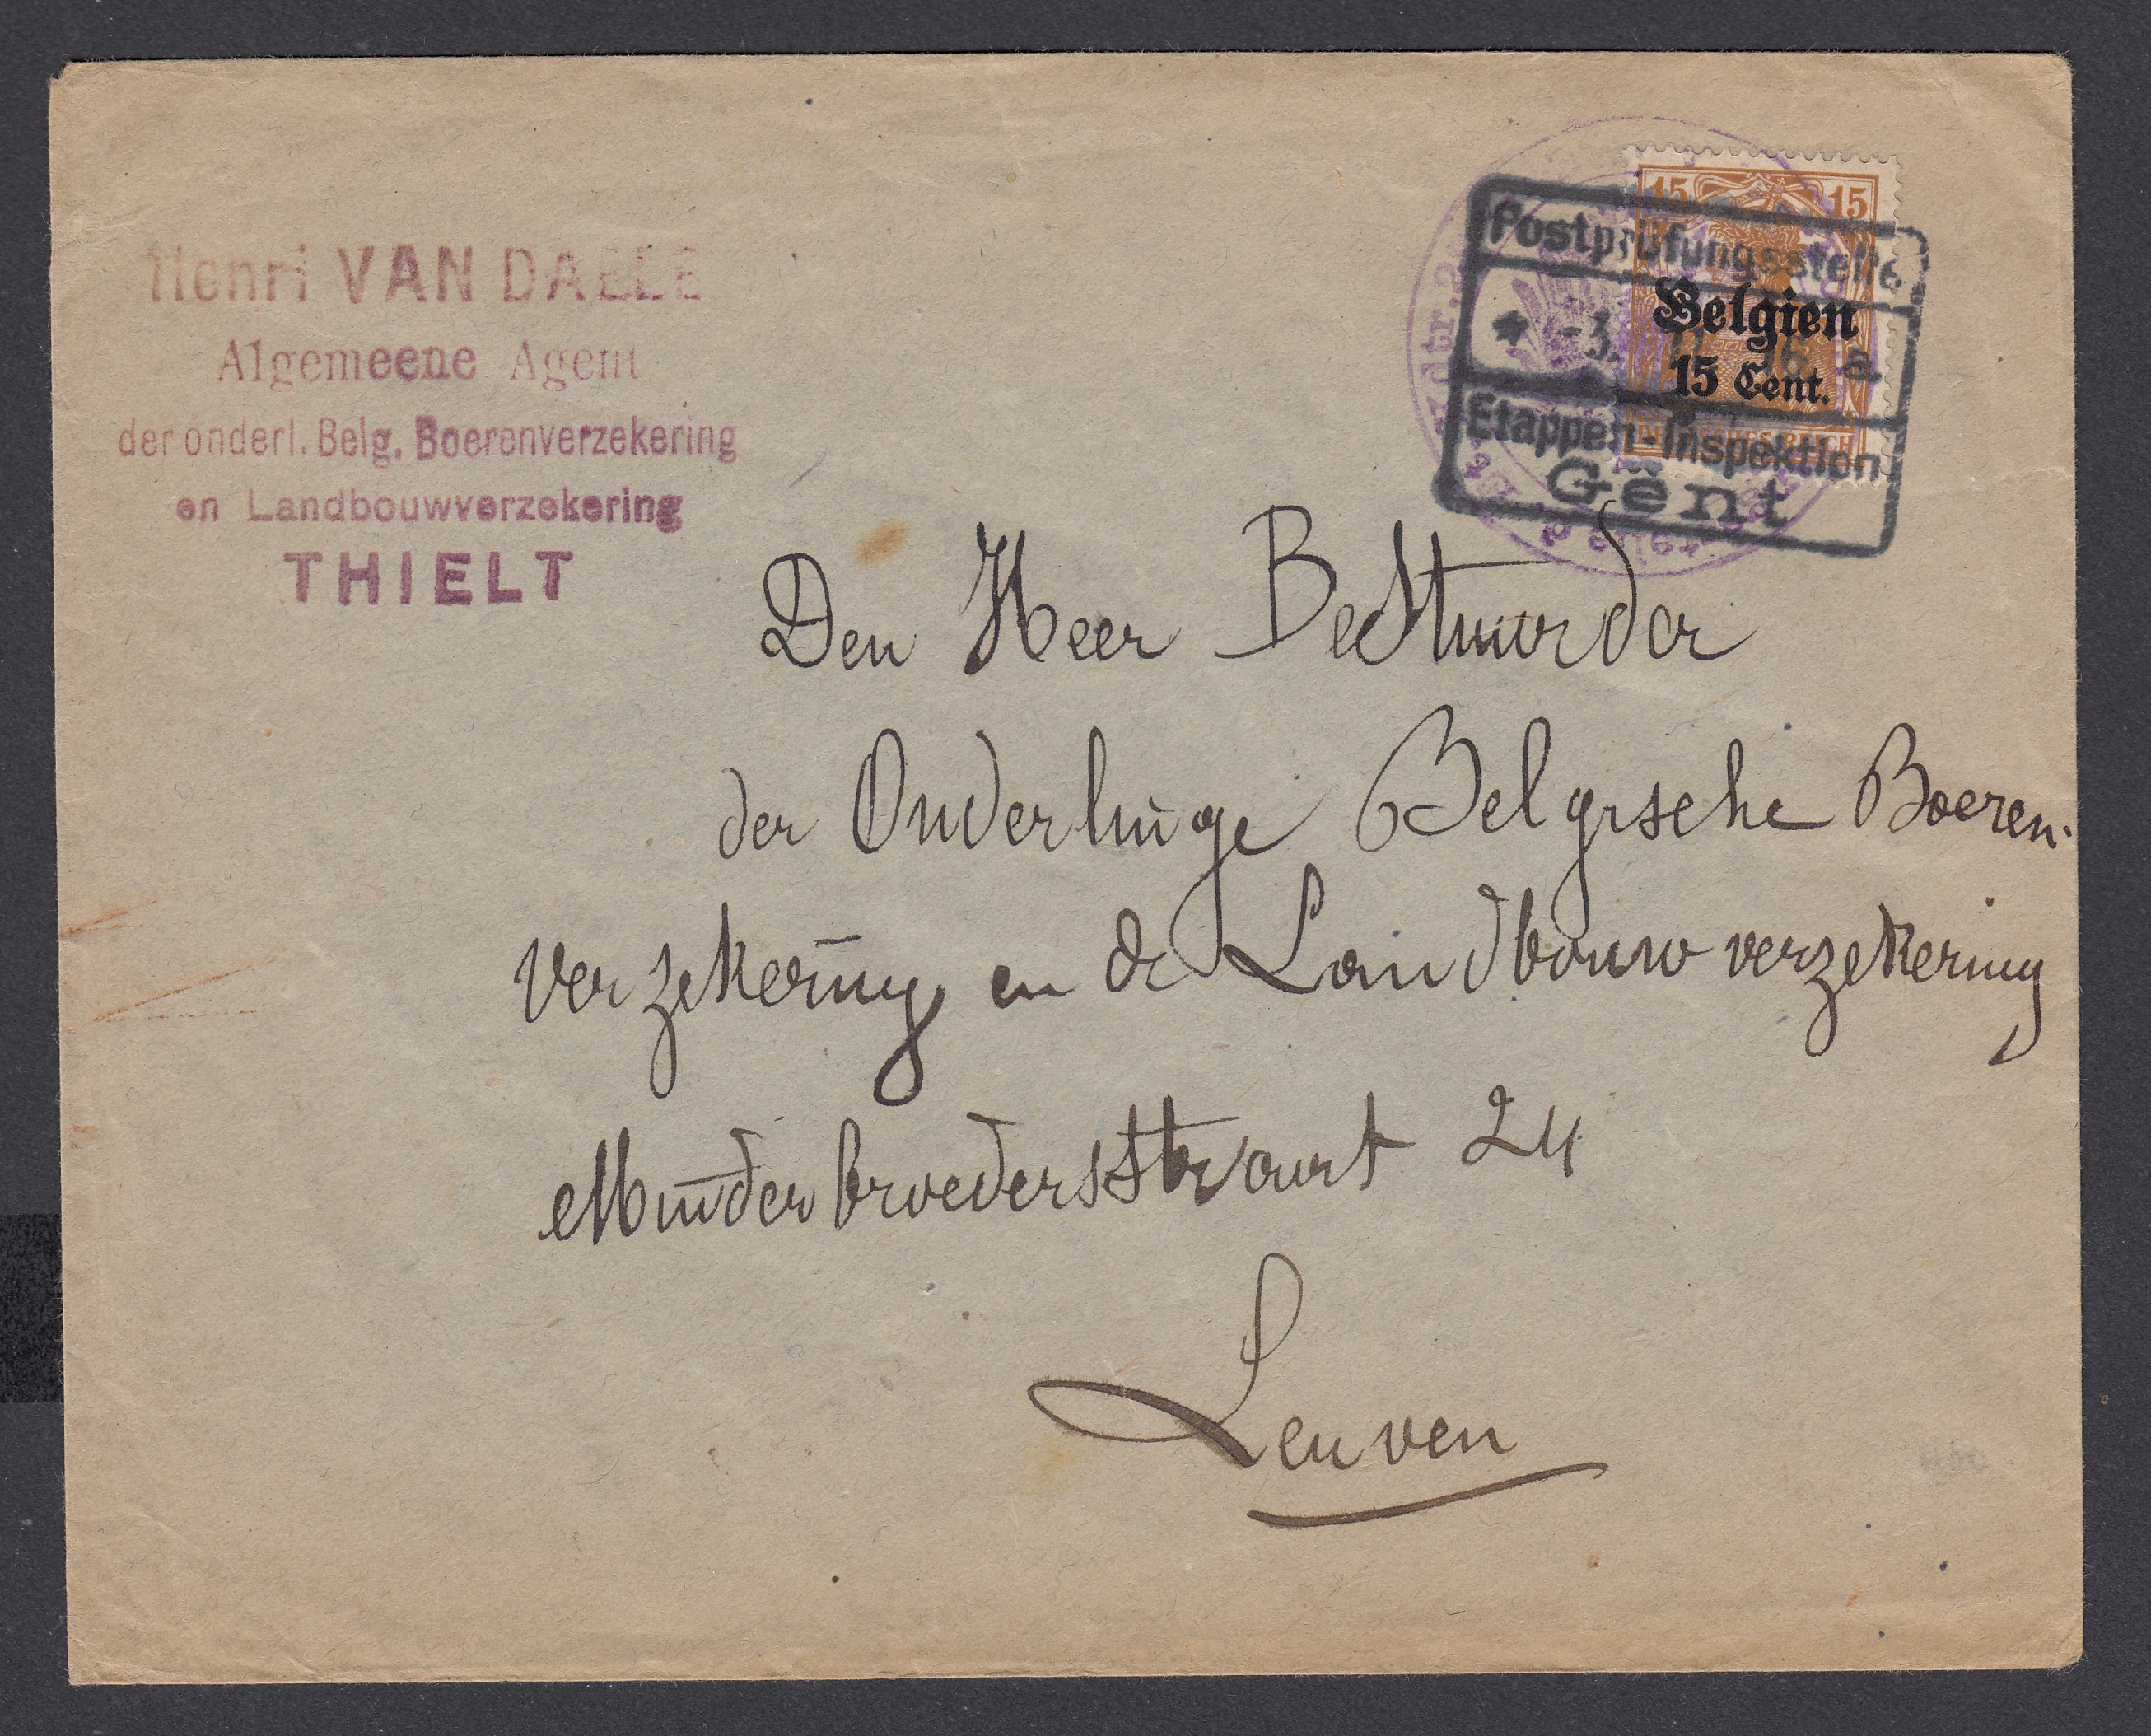 Henri VAN DAELE
Algemeene Agent
der onderl. Belg. Boerenverzekering
en Landbouwverzekering
THIELT
15 15
Postprüfungsstelle
Belgien
* -3. a
15 Cent.
Etappen-Inspektion
Gent
Den Heer Bestuurder
der Onderlinge Belgische Boeren-
verzekering en de Landbouwverzekering
Minderbroedersstraat 24
Leuven